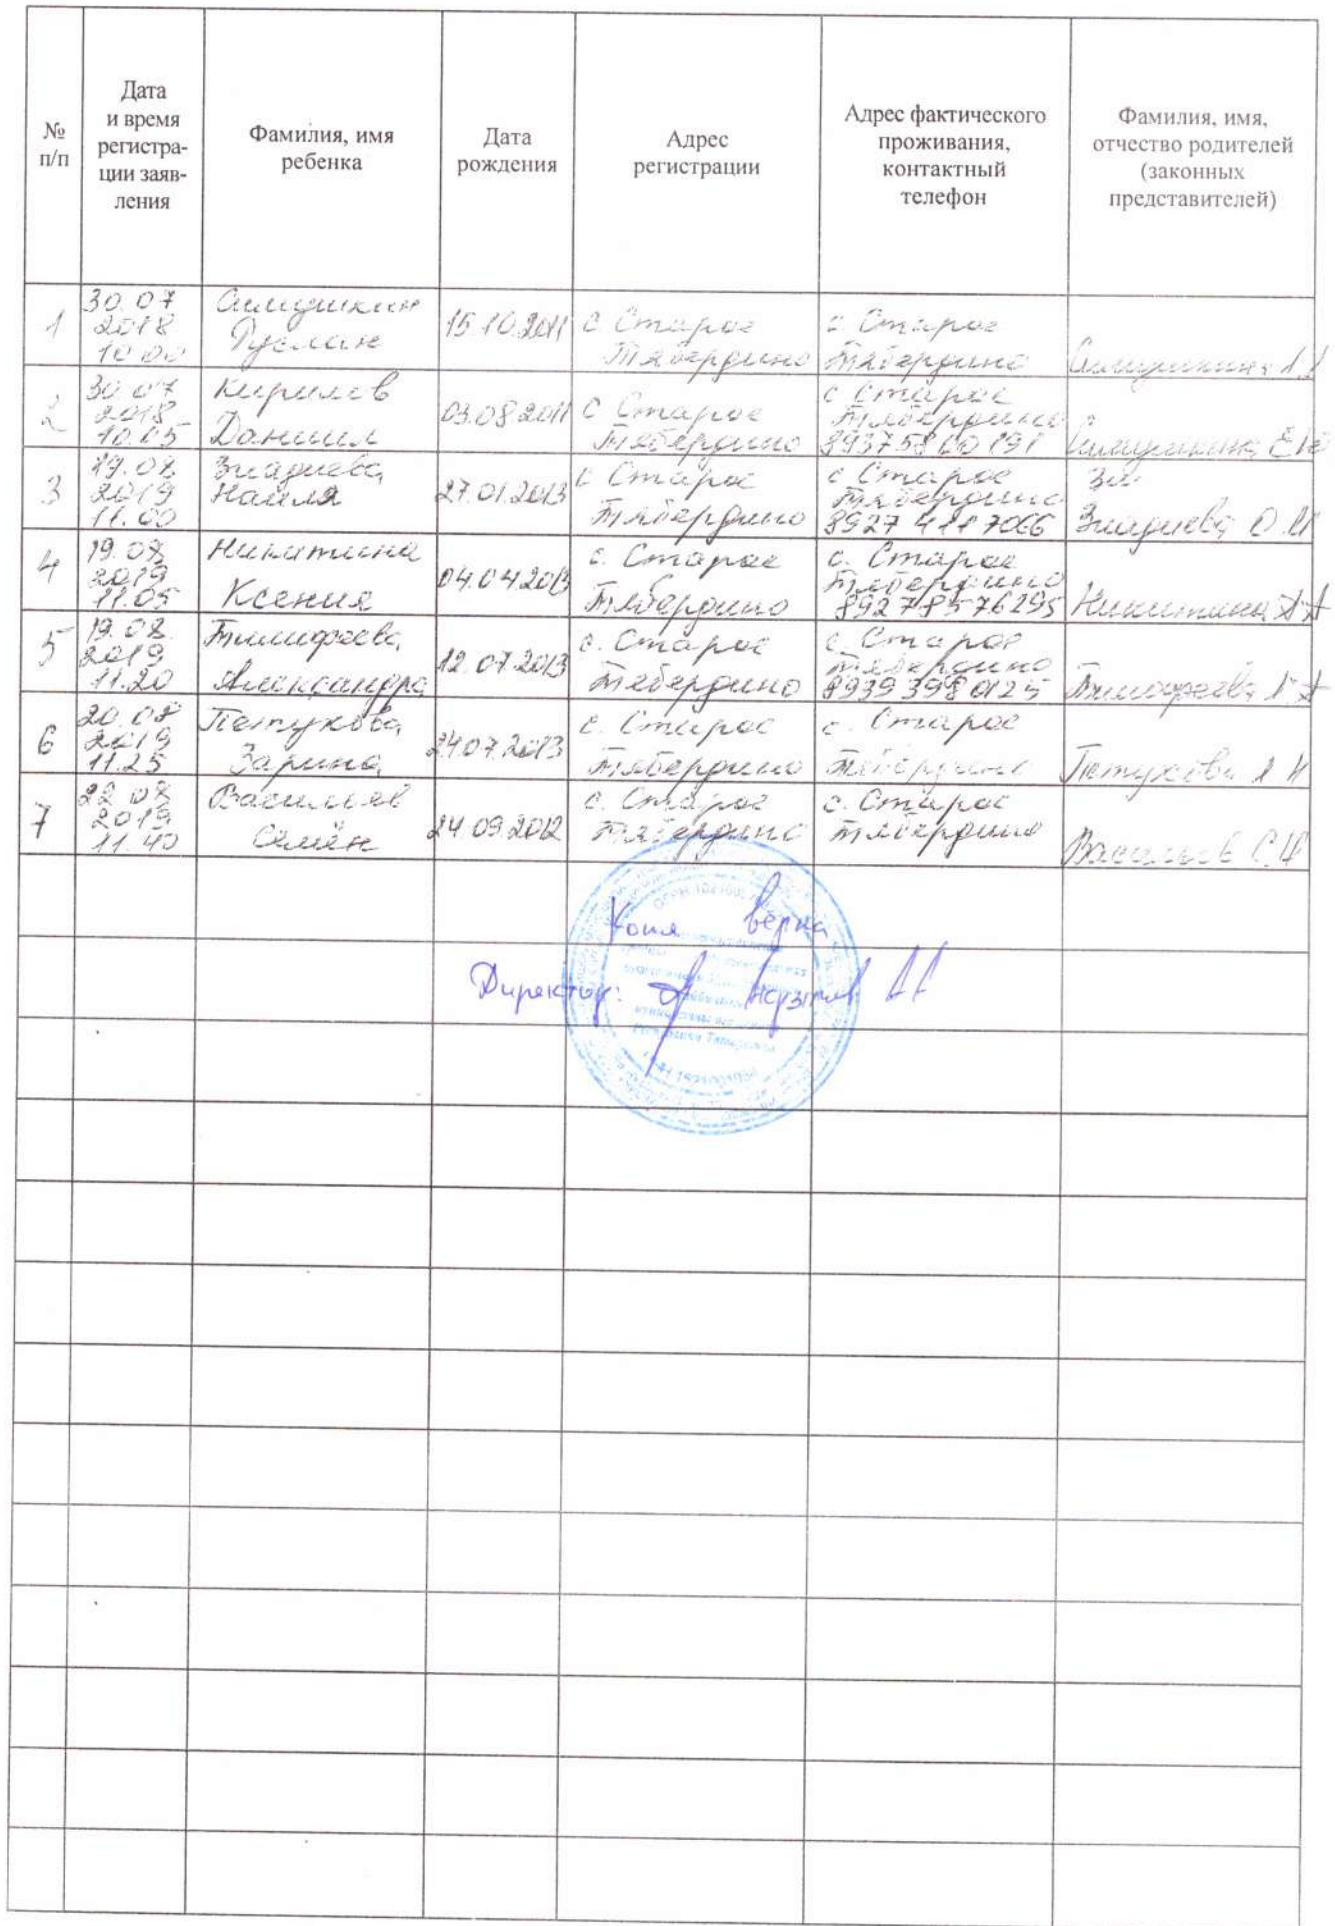 №
п/п
Дата
и время
регистра-
ции заяв-
ления
Фамилия, имя
ребенка
Дата
рождения
Адрес
регистрации
Адрес фактического
проживания,
контактный
телефон
Фамилия, имя,
отчество родителей
(законных
представителей)
1
30.07
2018
10.00
Руслан
15.10.2011
с Старое
Тябердино
с Старое
Тябердино
2
30.07
2018
10.05
Кирилов
Даниил
03.08.2011
с Старое
Тябердино
с Старое
Тябердино
3
19.08
2019
11.00
Зиадиева
Наиля
27.01.2013
с Старое
Тябердино
с Старое
Тябердино
8927 4117066
Зи
Зиадиева О.И
4
19.08
2019
11.05
Никитина
Ксения
04.04.2013
с. Старое
Тябердино
с. Старое
Тябердино
89278576295
Никитина А.А
5
19.08.
2019
11.20
Тимофеева
Александра
12.07.2013
с. Старое
Тябердино
с. Старое
Тябердино
8939 3980125
Тимофеева А.А
6
20.08
2019
11.25
Петухова
Зарина
24.07.2013
с. Старое
Тябердино
с. Старое
Тябердино
Петухова А И
7
22.08
2019
11.40
Васильев
Семён
24.09.2012
с. Старое
Тябердино
с. Старое
Тябердино
Васильев С.И
Копия верна
Директор: